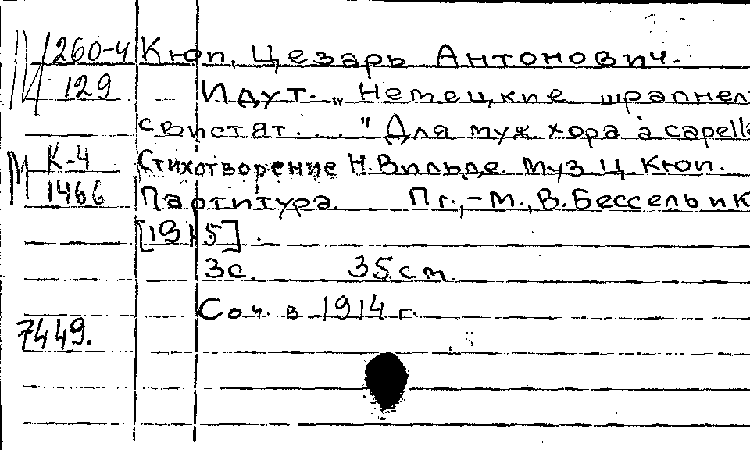 М 260-4 Кюп, Цезарь Антонович.
129 Идут. „Немецкие шрапнел
свистят..." Для муж. хора a capella
М К-4 Стихотворение Н. Вильде. Муз. Ц. Кюп.
1466 Партитура. Пг.,-М., В. Бессель и К
[1915].
3с. 35см.
Соч. в 1914 г.
7449.